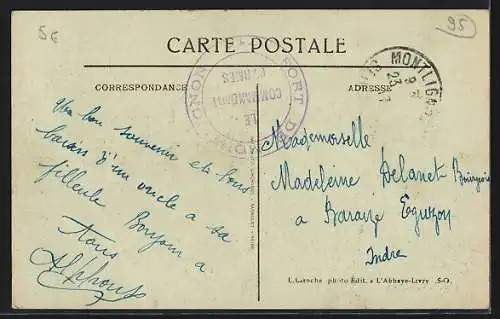 5€
95
CARTE POSTALE
CORRESPONDANCE
ADRESSE
FORT DE
LE
COMMANDANT
D'ARMES
MONTLIGNON
23
Un bon souvenir et bons
baisers d'un oncle à sa
filleule Bonjour à
tous
Alphonse
Mademoiselle
Madeleine Delanet Bourgeois
à Baraize Eguzon
Indre
L. Laroche photo Edit. à L'Abbaye-Livry S.-O.